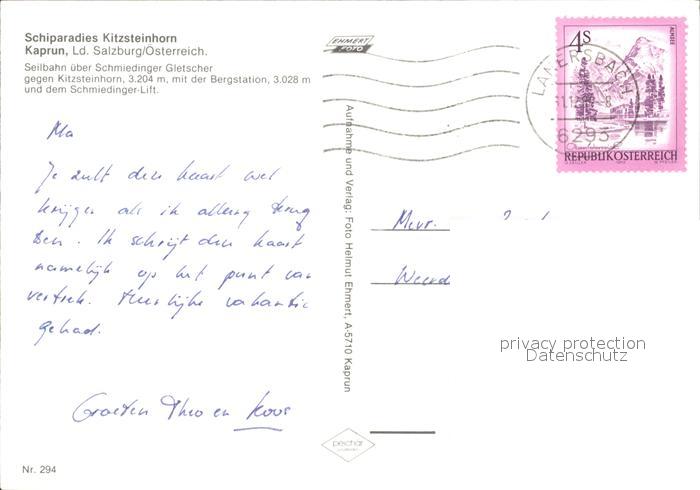 Schiparadies Kitzsteinhorn
Kaprun, Ld. Salzburg/Österreich.
Seilbahn über Schmiedinger Gletscher
gegen Kitzsteinhorn, 3.204 m, mit der Bergstation, 3.028 m
und dem Schmiedinger-Lift.
EHMERT
FOTO
4s
ALMSEE
LANERSBACH
6293
REPUBLIK ÖSTERREICH
Ma
Je zult deze kaart wel
krijgen als ik allang terug
ben. Ik schrijf deze kaart
namelijk op het punt van
vertrek. Heerlijke vakantie
gehad.
Groeten Theo en Koos
Aufnahme und Verlag: Foto Helmut Ehmert, A-5710 Kaprun
Mevr.
Weerd
privacy protection
Datenschutz
peschar
Nr. 294